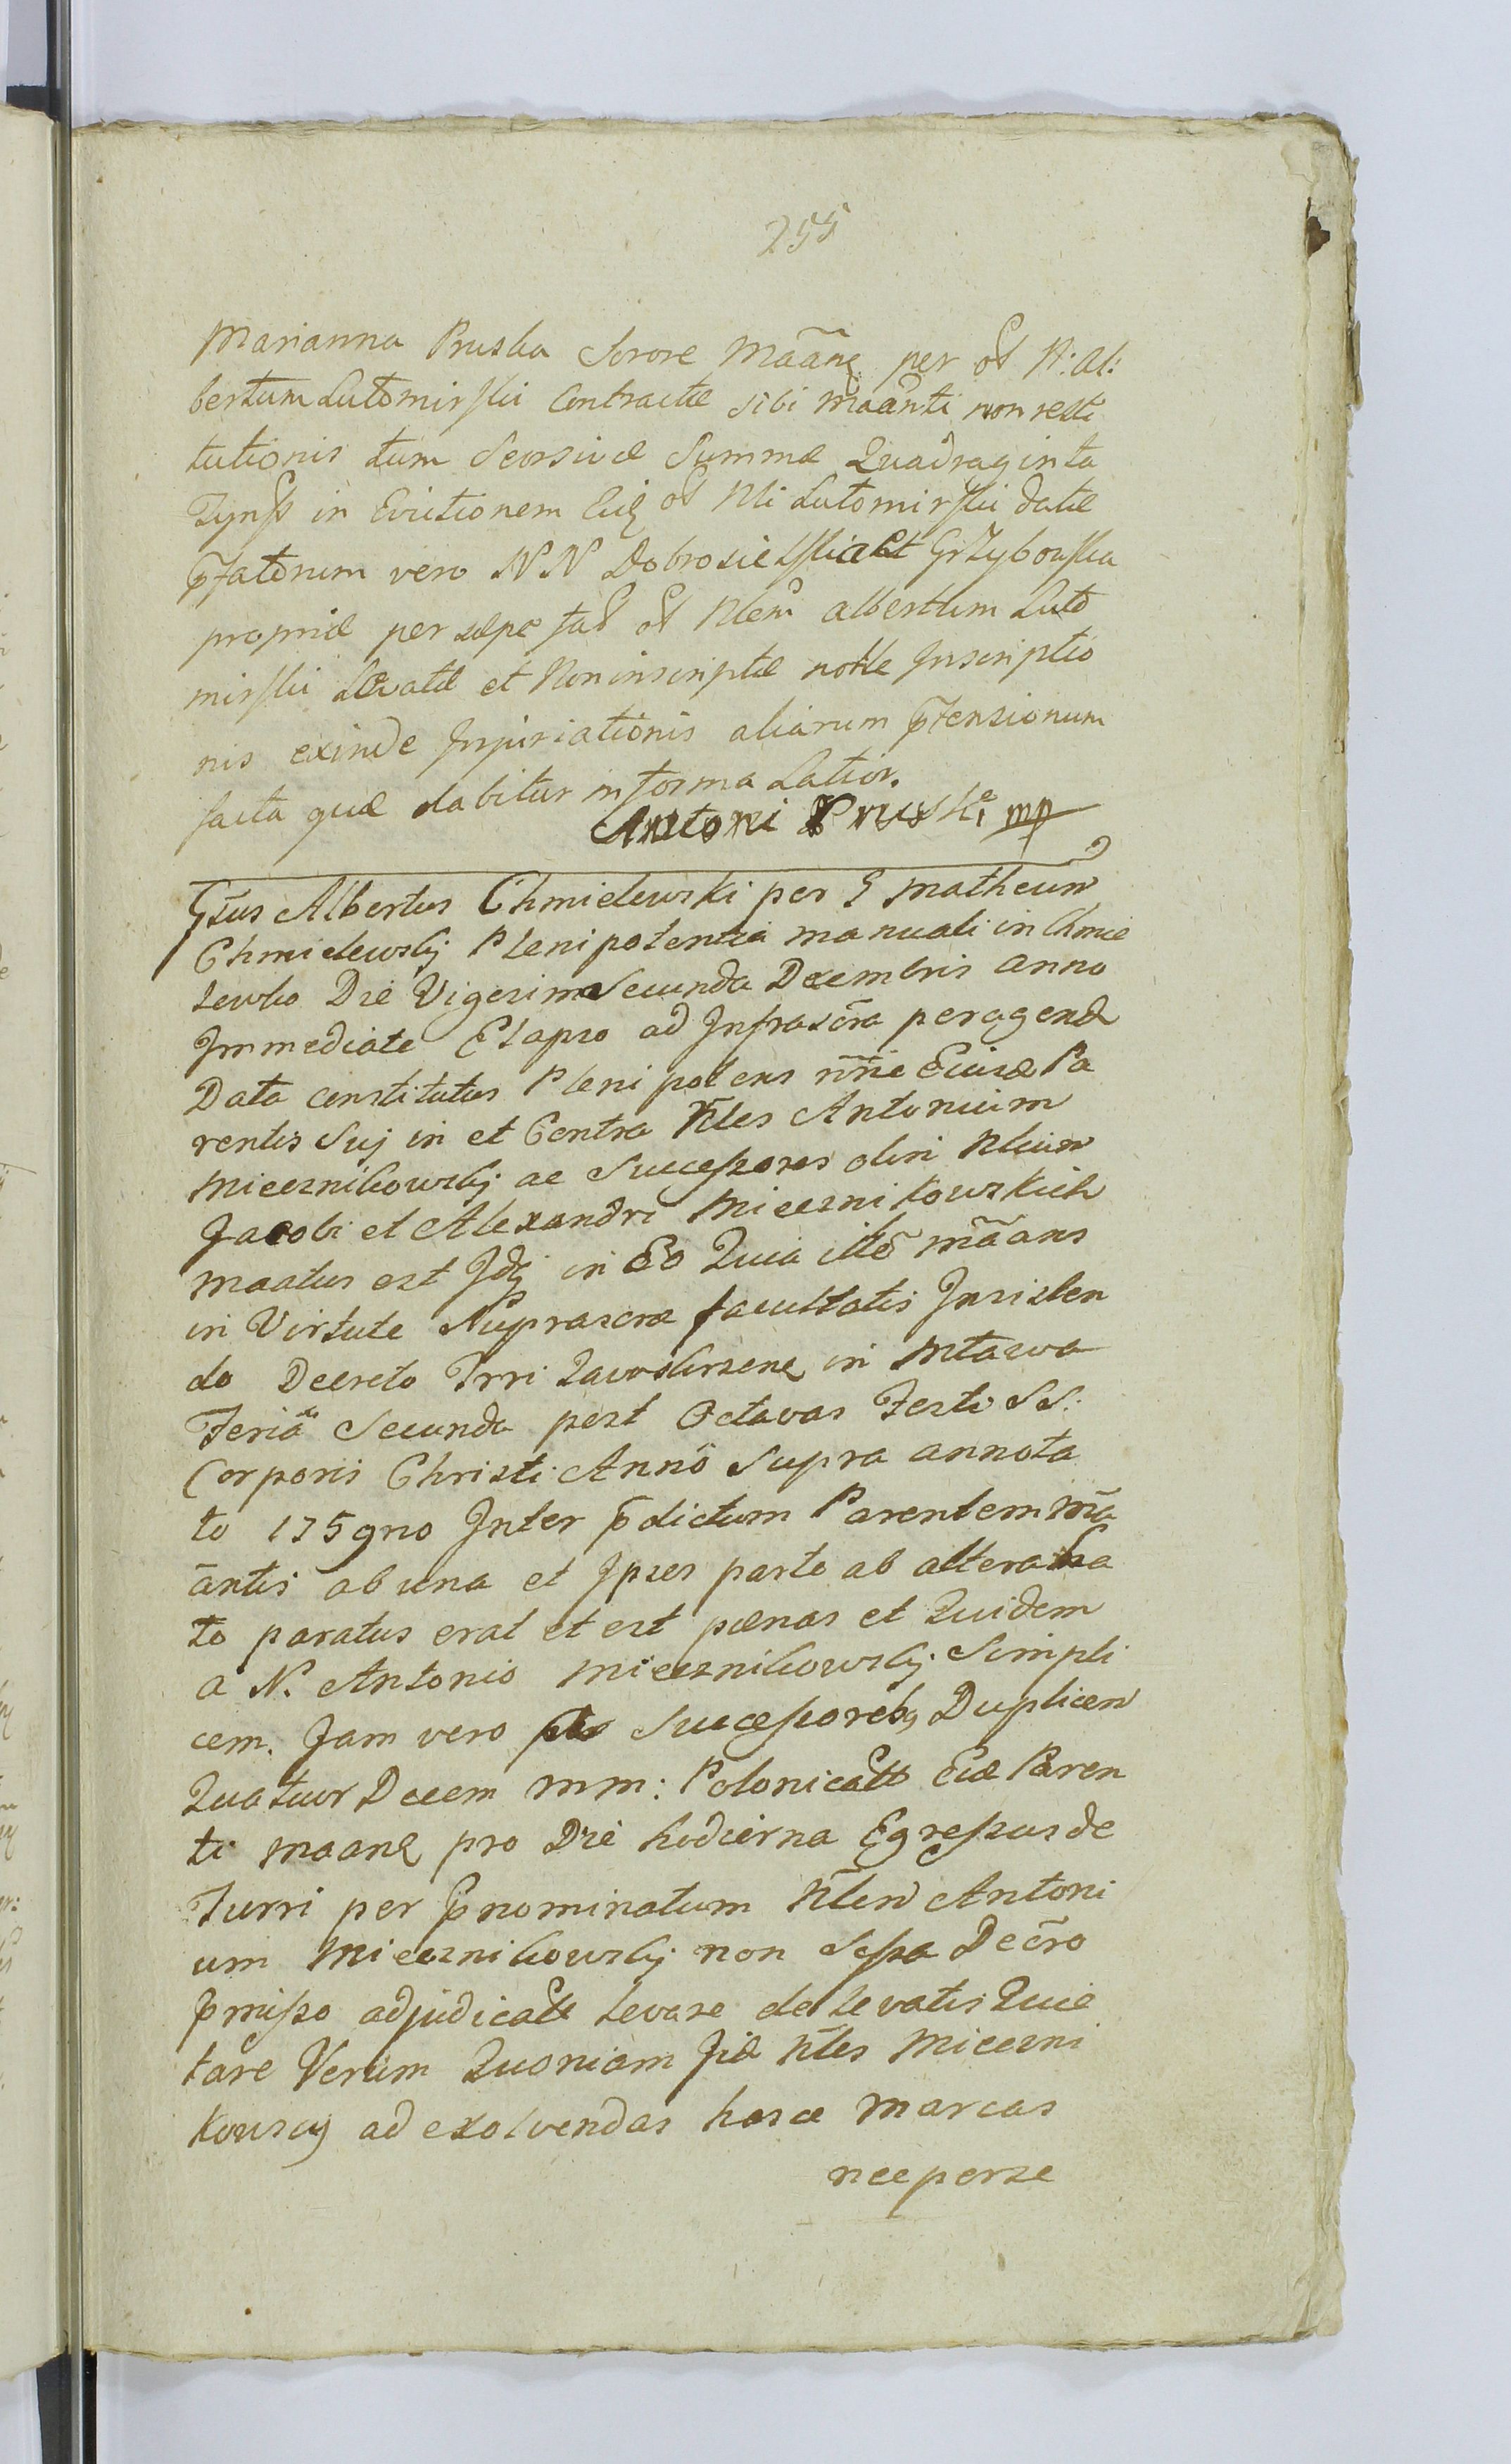 255
Marianna Pruska Sorore Maãnę per ol N: Al:
bertum Lutomirski Contractæ sibi maãnti non resti
tutionis tum Seorsivæ Summæ Quadraginta
Tynff in Evictionem Eię ol Nli Lutomirski datæ
p̃fatorum vero NN Dobrosielski et Grzybowska
propriæ per sæpe fat ol Nlem Albertum Luto
mirski Levatæ et Non inscriptæ nolle Inscriptio
nis exinde Injuriationis aliarum p̃tensionum
facta quæ dabitur in forma Latior.
Antoni Pruski mp
Gsus Albertus Chmielewski per G Matheum
Chmielewskij Plenipotentia manuali in Chmie
lewko Die Vigesima Secunda Decembris Anno
Immediate Elapso ad Infrascr̃a peragend
Data constitutus Plenipotens nñe Eiusd Pa
rentis Sui in et Contra Nl̃es Antonium
Miecznikowskij ac Successores olim Nlium
Jacobi et Alexandri Miecznikowskich
maatus est Idq in Eo Quia ille mãans
in Virtute Suprascræ facultatis Insisten
do Decreto Trri Zawskrzenę in Mława
Feria Secunda post Octavas Festi SS.
Corporis Christi Anno Supra annota
to 1759no Inter p̃dictum Parentem mã
ãntis ab una et Ipsos parte ab altera
to paratus erat et est pœnas et Quidem
a N. Antonio Miecznikowskij Simpli
cem. Jam vero Successorebꝫ Duplicem
Quatuor Decem mm: Polonicall Eid Paren
ti maanę pro Die hodierna Egressus de
Turri per p̃nominatum Nl̃em Antoni
um Miecznikowskij non Sessa Decr̃o
p̃misso adjudicall levare de levatis Quie
tare Verum Quoniam Iid Nl̃es Mieczni
kowscij ad exolvendas hasce Marcas
nec per se